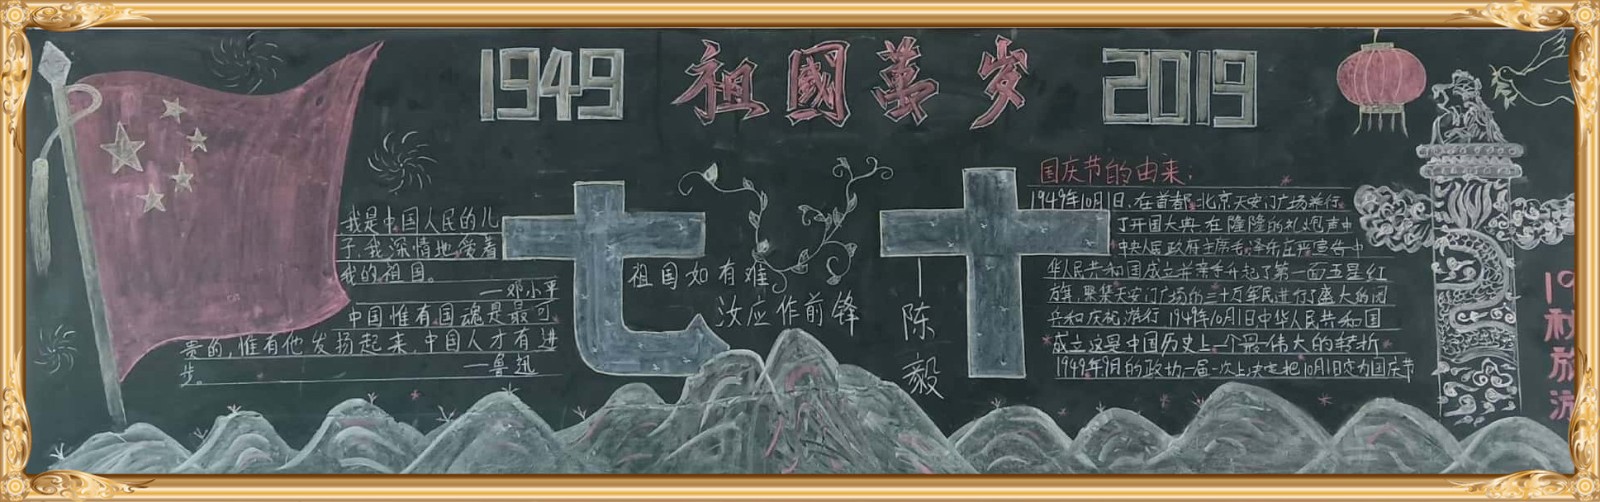 1949 祖國萬岁 2019
我是中国人民的儿
子,我深情地爱着
我的祖国。
—邓小平
中国惟有国魂是最可
贵的,惟有他发扬起来,中国人才有进
步。
—鲁迅
七十
祖国如有难
汝应作前锋
—陈毅
国庆节的由来:
1949年10月1日,在首都北京天安门广场举行
了开国大典,在隆隆的礼炮声中
中央人民政府主席毛泽东庄严宣告中
华人民共和国成立并亲手升起了第一面五星红
旗,聚集天安门广场的三十万军民进行了盛大的阅
兵和庆祝游行 1949年10月1日中华人民共和国
成立这是中国历史上一个最伟大的转折
1949年9月的政协一届一次上决定把10月1日定为国庆节
19秋旅游